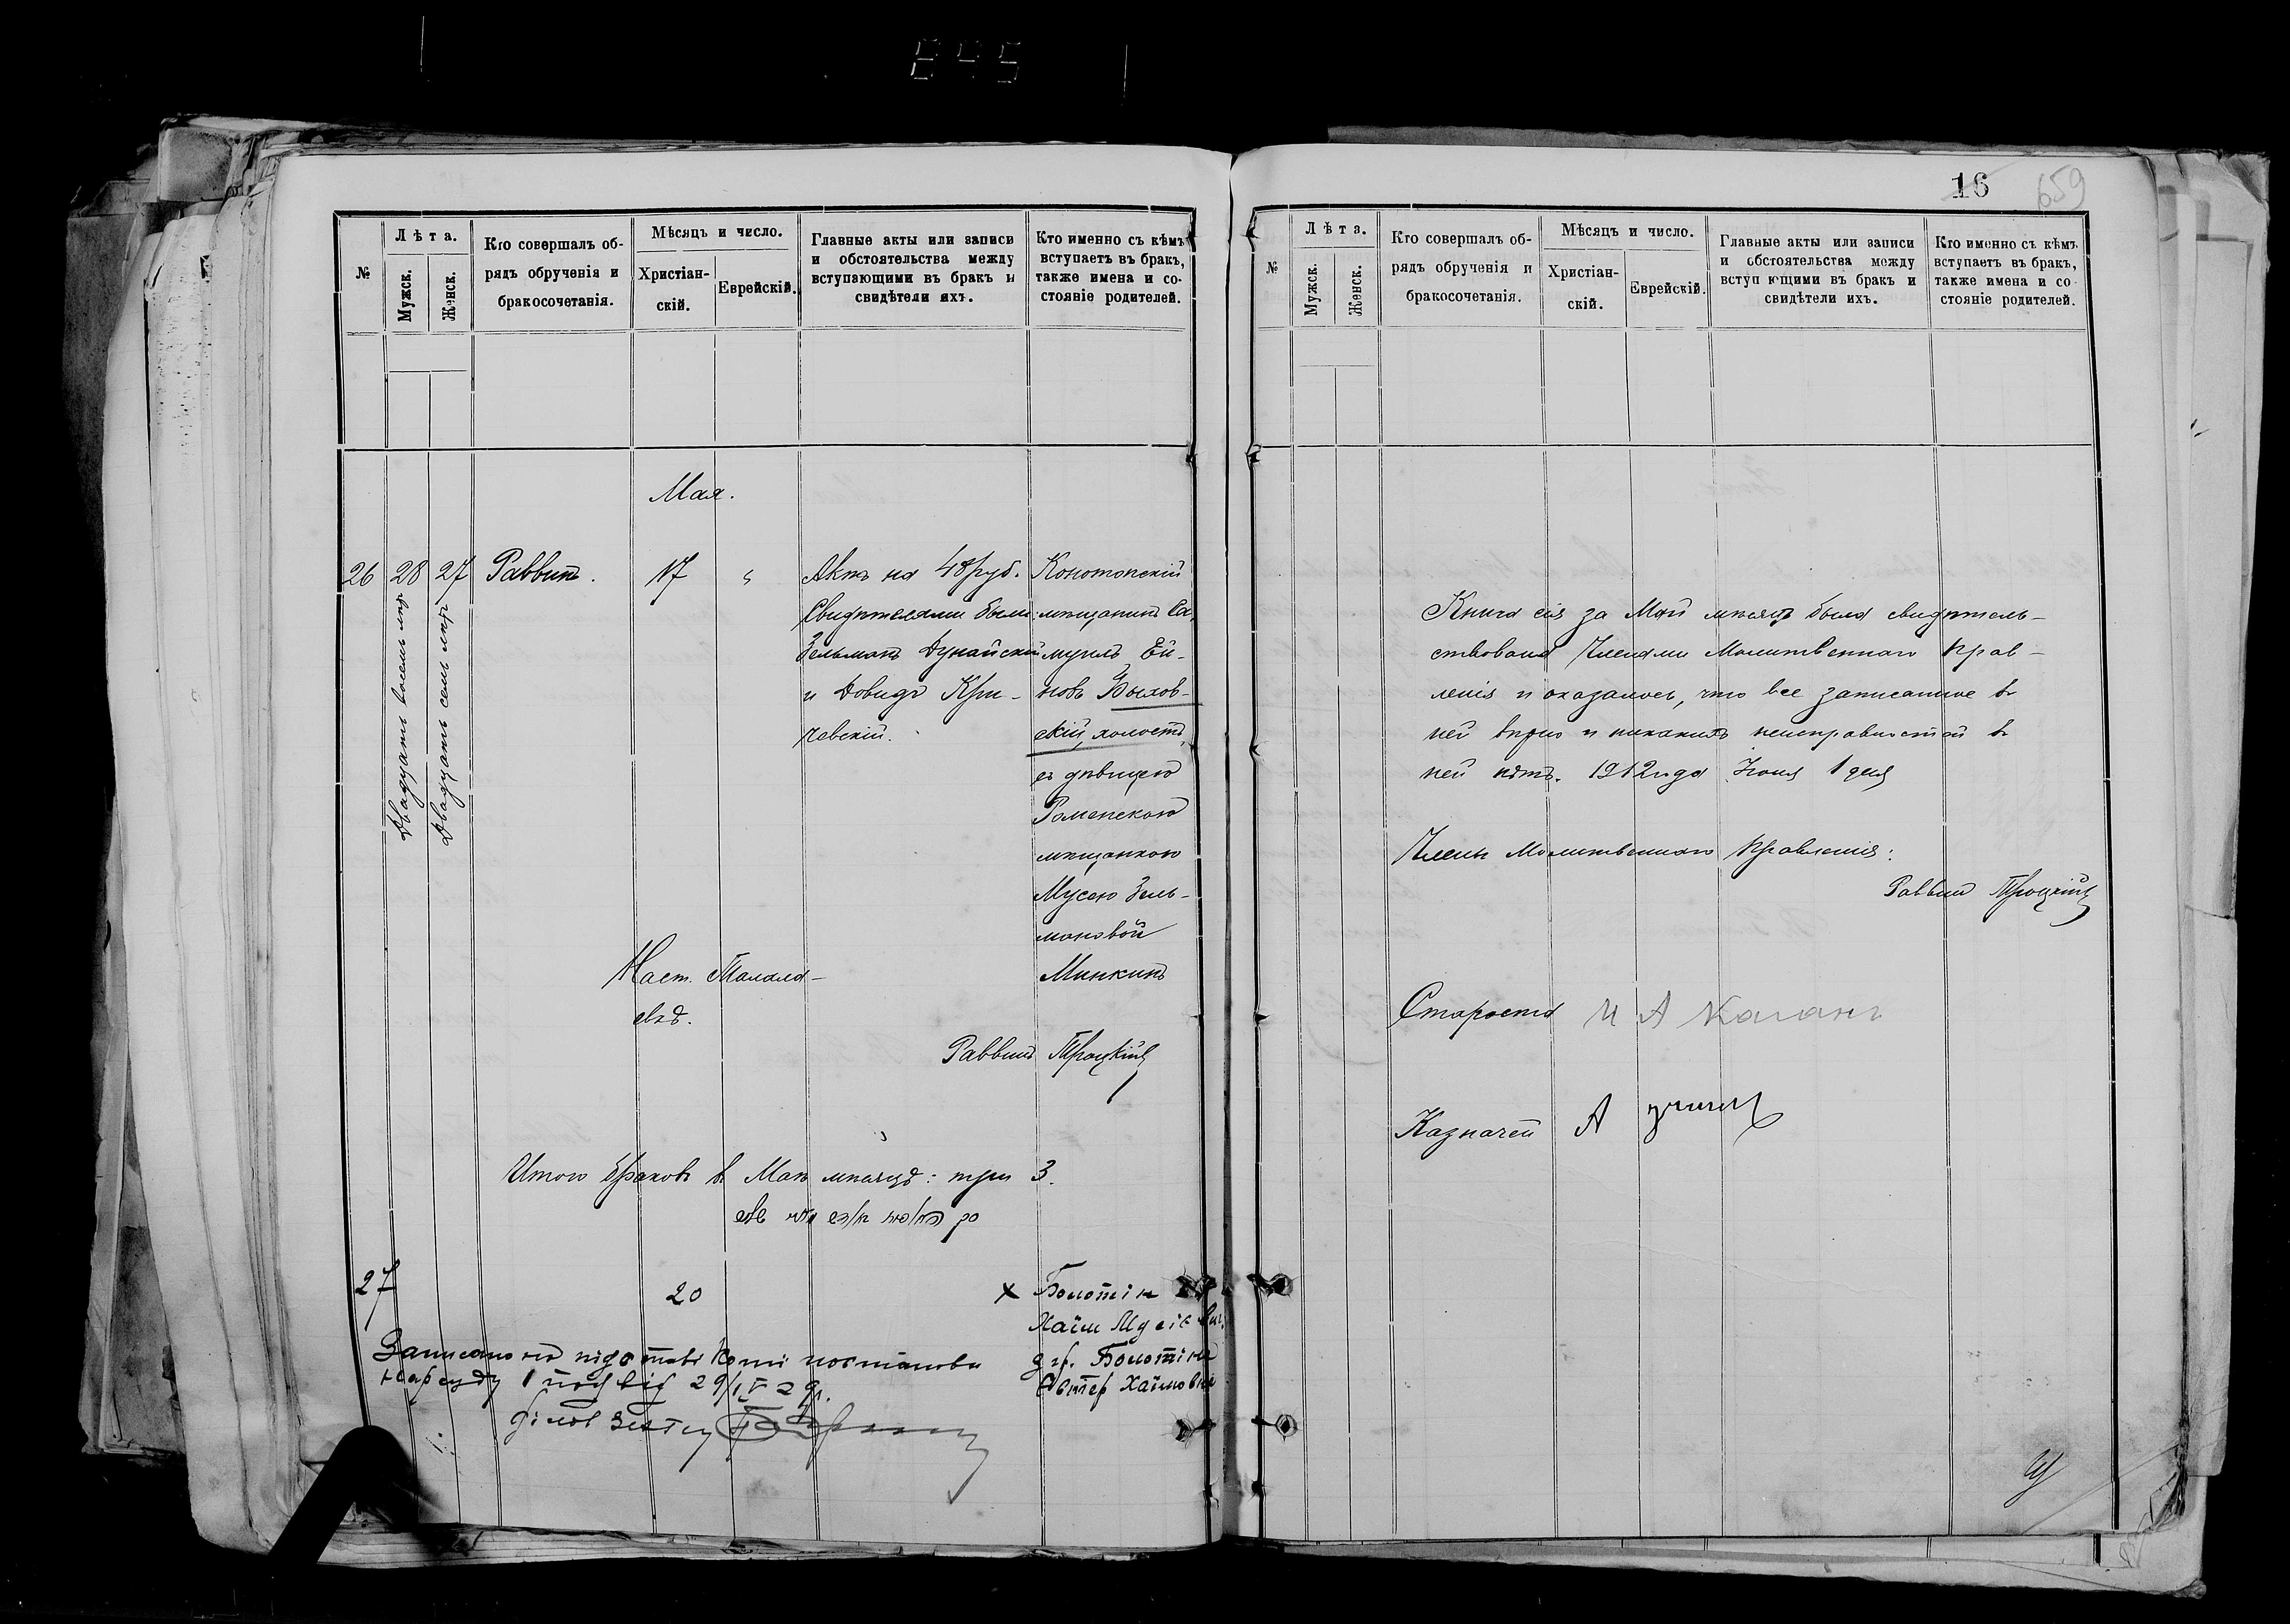 845
№
Лѣта.
Мужск.
Женск.
Кто совершалъ об-
рядъ обрученія и
бракосочетанія.
Мѣсяцъ и число.
Христіан-
скій.
Еврейскій.
Главные акты или записи
и обстоятельства между
вступающими въ бракъ и
свидѣтели ихъ.
Кто именно съ кѣмъ
вступаетъ въ бракъ,
также имена и со-
стояніе родителей.
Мая.
26
28
Двадцать восемь лѣтъ
27
Двадцать семь лѣтъ
Раввинъ.
17
Актъ на 48 руб.
Свидѣтелями были:
Зельманъ Дунайскій
и Довидъ Кри-
чевскій.
Конотопскій
мѣщанинъ Са-
муилъ
новъ Быхов-
скій, холостъ,
съ дѣвицею
Роменскою
мѣщанкою
Мусею Зель-
мановой
Минкинъ
Мѣст. Талала-
евкѣ.
Раввинъ Троцкій
Итого браковъ въ Маѣ мѣсяцѣ: три 3.
27
20
х Болотін
Хаїм
гр. Болотіна
Естер Хаїмовна
Записано на підставі копії постанови
Нарсуду
16
659
№
Лѣта.
Мужск.
Женск.
Кто совершалъ об-
рядъ обрученія и
бракосочетанія.
Мѣсяцъ и число.
Христіан-
скій.
Еврейскій.
Главные акты или записи
и обстоятельства между
вступ ющими въ бракъ и
свидѣтели ихъ.
Кто именно съ кѣмъ
вступаетъ въ бракъ,
также имена и со
стояніе родителей.
Книга сія за Май мѣсяцъ была свидѣтель-
ствована Членами Молитвеннаго Прав-
ленія и оказалось, что все записанное въ
ней вѣрно и никакихъ неисправностей въ
ней нѣтъ. 1912 года Іюня 1 дня
Члены Молитвеннаго Правленія:
Раввинъ Троцкій
Староста И А Каганъ
Казначей А